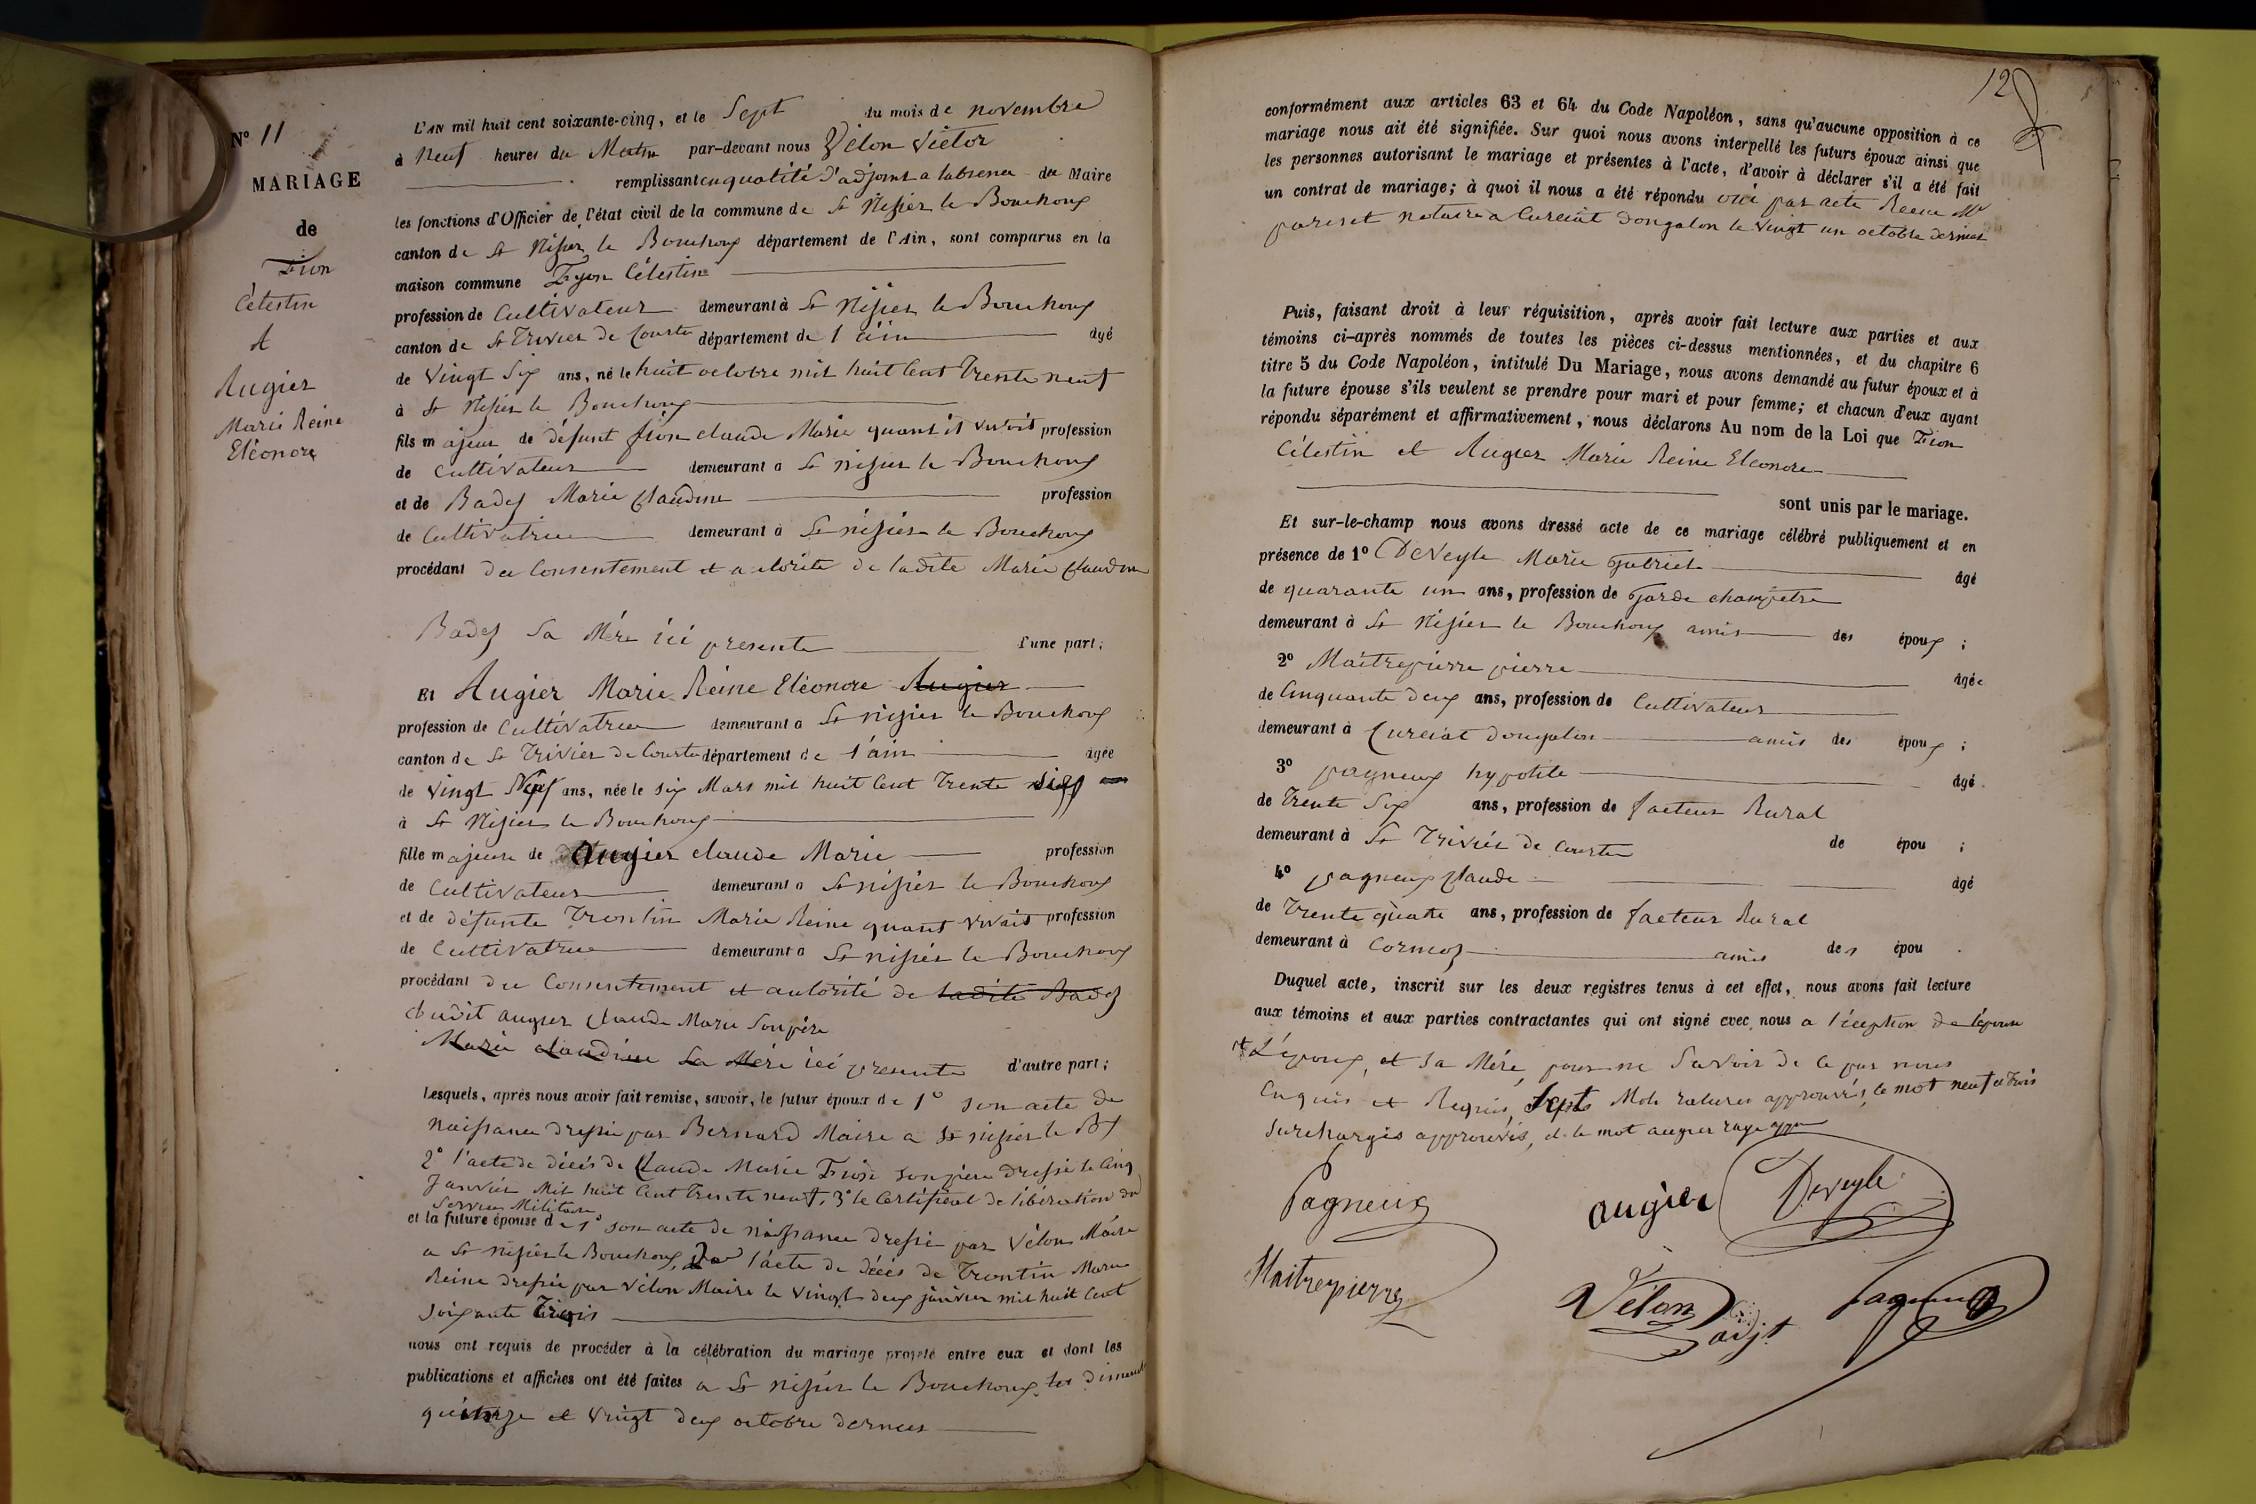 N° 11
MARIAGE
de
Fion
Célestin
et
Augier
Marie Reine
Eléonore
L'AN mil huit cent soixante-cinq, et le Sept du mois de novembre
à Neuf heures du Matin par-devant nous Vélon Victor
remplissant en qualité d'adjoint a labsence du Maire
les fonctions d'Officier de l'état civil de la commune de St Nisier le Bouchoux
canton de St Nisier le Bouchoux département de l'Ain, sont comparus en la
maison commune Fyon Célestin
profession de Cultivateur demeurant à St Nisier le Bouchoux
canton de St Trivier de Courtes département de l'ain âgé
de vingt Six ans, né le huit octobre mil huit Cent Trente neuf
à St Nisier le Bouchoux
fils majeur de défunt fion claude Marie quant il vivoit profession
de Cultivateur demeurant à St nisier le Bouchoux
et de Badez Marie Claudine profession
de Cultivatrice demeurant à St nisier le Bouchoux
procédant du Consentement et autorité de ladite Marie Claudine
Badez Sa Mère ici presente d'une part;
Et Augier Marie Reine Eléonore Augier
profession de Cultivatrice demeurant à St nisier le Bouchoux
canton de St Trivier de Courtes département de l'ain âgée
de vingt Neuf ans, née le six Mars mil huit Cent Trente six
à St Nisier le Bouchoux
fille majeure de augier claude Marie profession
de Cultivateur demeurant à St nisier le Bouchoux
et de défunte Trontin Marie Reine quant vivait profession
de Cultivatrice demeurant à St nisier le Bouchoux
procédant du Consentement et autorité de ladite Badez
dudit augier Claude Marie Son père
Marie Claudine Sa Mère ici presente d'autre part;
Lesquels, après nous avoir fait remise, savoir, le futur époux de 1° son acte de
naissance dressé par Bernard Maire a St nisier le Bx
2° l'acte de décès de Claude Marie Fion son père dressé le Cinq
Janvier Mil huit Cent Trente neuf, 3° le Certificat de libération du
Service Militaire
et la future épouse de 1° son acte de naissance dressé par Vélon Maire
a St nisier le Bouchoux, 2° l'acte de décès de Trontin Marie
Reine dressé par Vélon Maire le vingt deux janvier mil huit Cent
soixante Trois
nous ont requis de procéder à la célébration du mariage projeté entre eux et dont les
publications et affiches ont été faites a St nisier le Bouchoux les dimanche
quinze et vingt deux octobre dernier
12
conformément aux articles 63 et 64 du Code Napoléon, sans qu'aucune opposition à ce
mariage nous ait été signifiée. Sur quoi nous avons interpellé les futurs époux ainsi que
les personnes autorisant le mariage et présentes à l'acte, d'avoir à déclarer s'il a été fait
un contrat de mariage; à quoi il nous a été répondu oui par acte Recu Mr
pariset notaire a Curciat Dongalon le vingt un octobre dernier
Puis, faisant droit à leur réquisition, après avoir fait lecture aux parties et aux
témoins ci-après nommés de toutes les pièces ci-dessus mentionnées, et du chapitre 6
titre 5 du Code Napoléon, intitulé Du Mariage, nous avons demandé au futur époux et à
la future épouse s'ils veulent se prendre pour mari et pour femme; et chacun d'eux ayant
répondu séparément et affirmativement, nous déclarons Au nom de la Loi que Fion
Célestin et Augier Marie Reine Eleonore
sont unis par le mariage.
Et sur-le-champ nous avons dressé acte de ce mariage célébré publiquement et en
présence de 1° DeVeyle Marie Gabriel âgé
de quarante un ans, profession de Garde champêtre
demeurant à St Nisier le Bouchoux amis des époux;
2° Maitrepierre pierre âgée
de Cinquante deux ans, profession de Cultivateur
demeurant à Curciat Dongalon amis des époux;
3° pagneux hypolite âgé
de Trente Six ans, profession de facteur Rural
demeurant à St Trivier de Courtes de épou ;
4° pagneux Claude âgé
de Trente quatre ans, profession de facteur Rural
demeurant à Cormoz amis des épou .
Duquel acte, inscrit sur les deux registres tenus à cet effet, nous avons fait lecture
aux témoins et aux parties contractantes qui ont signé avec nous a l'éception de l'épouse
et L'époux, et sa Mère, pour ne Savoir de ce par nous
Enquis et Requis, Sept Mots raturés approuvés, le mot neuf et Trois
Surchargés approuvés, et le mot augier rayé
Pagneux
augier
Deveyle
Maitrepierre
Vélon adjt
Pagneux